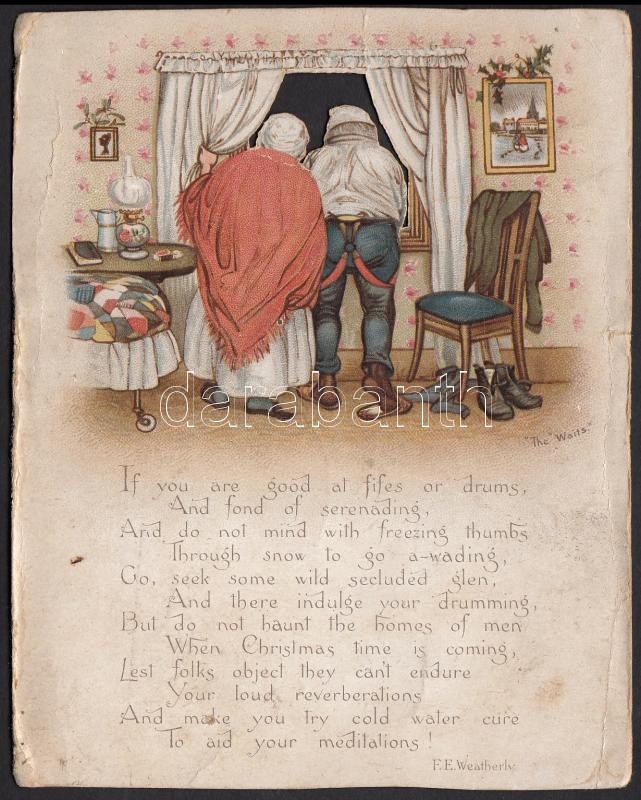 darabanth
"The" Waits."
If you are good at fifes or drums,
And fond of serenading,
And do not mind with freezing thumbs
Through snow to go a-wading,
Go, seek some wild secluded glen,
And there indulge your drumming,
But do not haunt the homes of men
When Christmas time is coming,
Lest folks object they can't endure
Your loud reverberations
And make you try cold water cure
To aid your meditations!
F.E.Weatherly